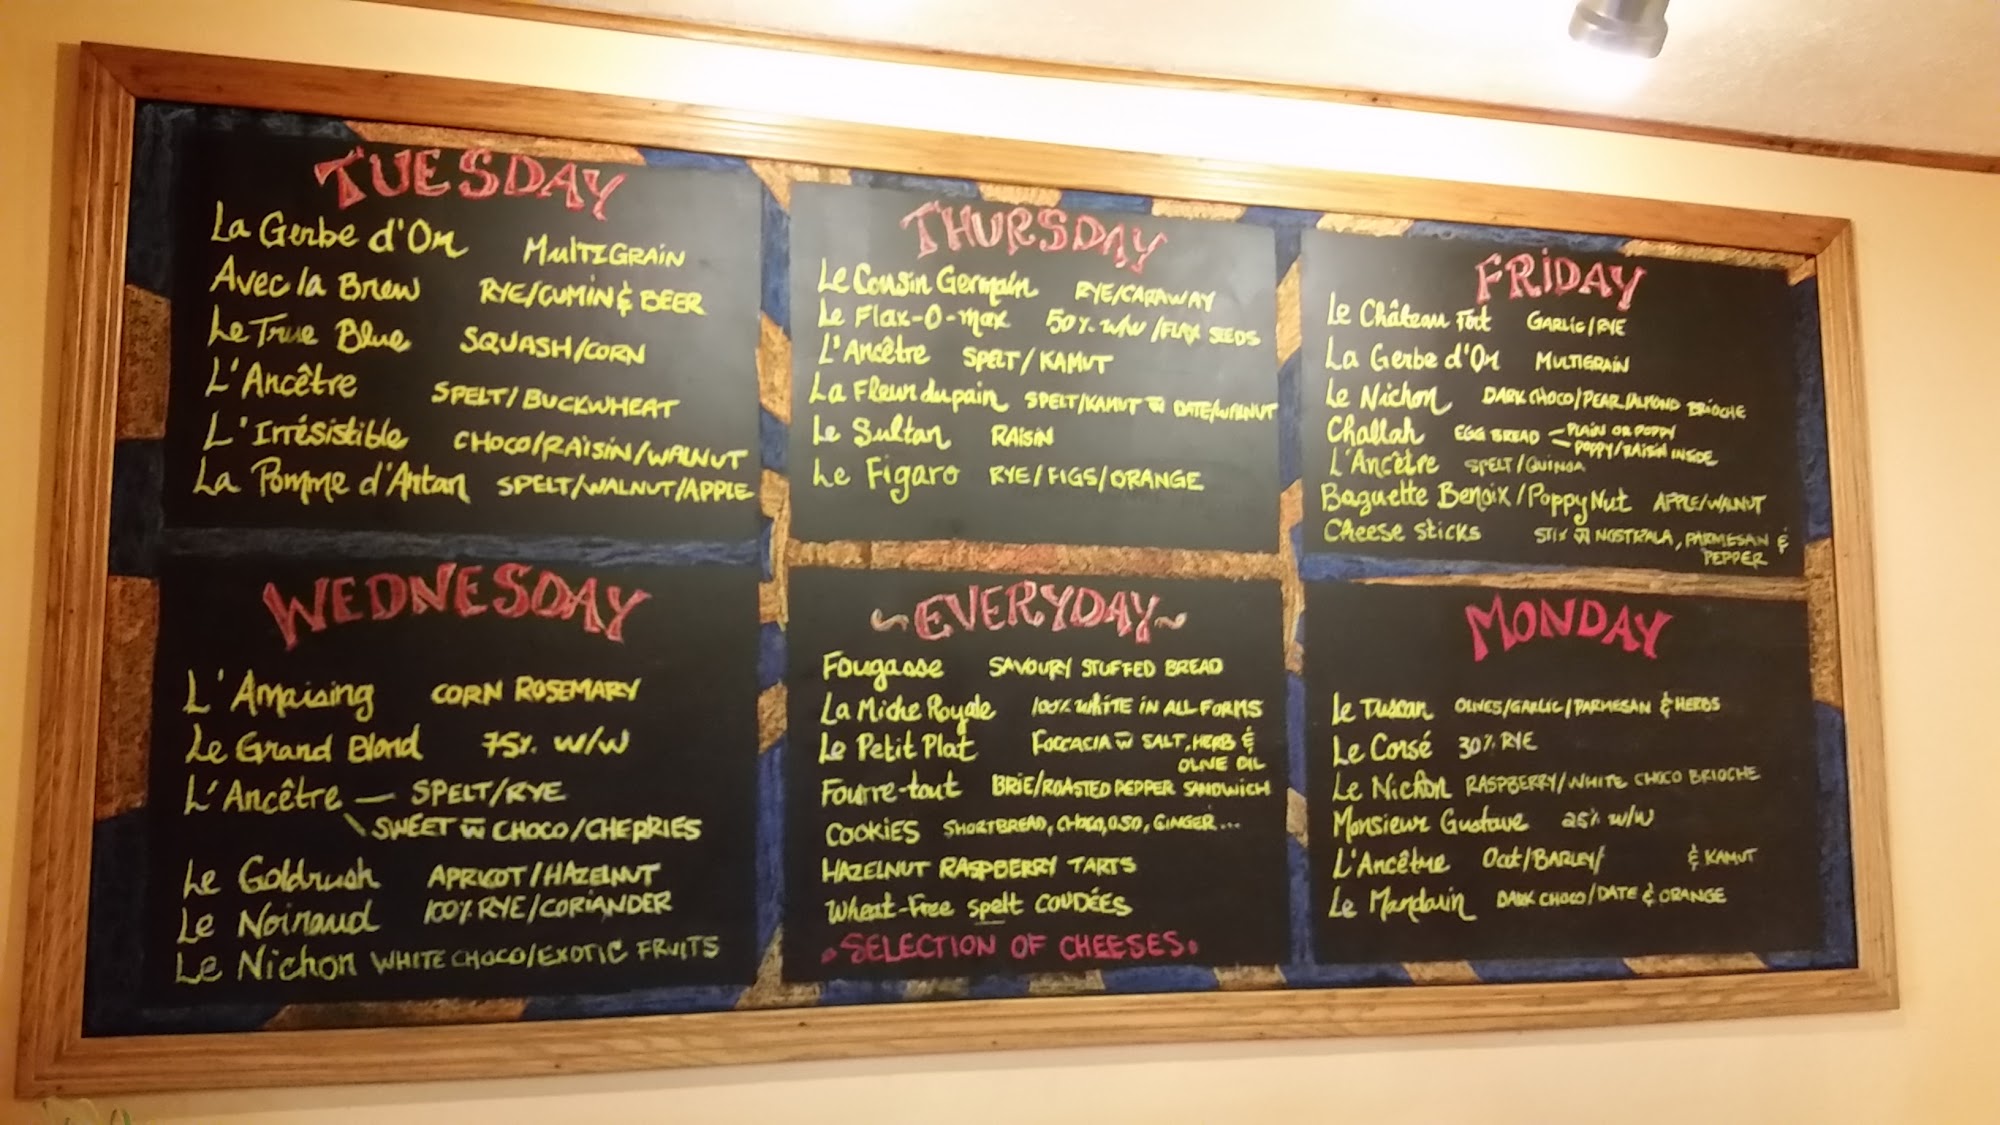 TUESDAY
La Gerbe d'Or MULTIGRAIN
Avec la Brew RYE/CUMIN & BEER
Le True Blue SQUASH/CORN
L'Ancêtre SPELT/BUCKWHEAT
L'Irrésistible CHOCO/RAISIN/WALNUT
La Pomme d'Antan SPELT/WALNUT/APPLE
WEDNESDAY
L'Amaising CORN ROSEMARY
Le Grand Blond 75% W/W
L'Ancêtre — SPELT/RYE
\ SWEET w̅ CHOCO/CHERRIES
Le Goldrush APRICOT/HAZELNUT
Le Noiraud 100% RYE/CORIANDER
Le Nichon WHITE CHOCO/EXOTIC FRUITS
THURSDAY
Le Cousin Germain RYE/CARAWAY
Le Flax-O-max 50% W/W /FLAX SEEDS
L'Ancêtre SPELT/KAMUT
La Fleur du pain SPELT/KAMUT w̅ DATE/WALNUT
Le Sultan RAISIN
Le Figaro RYE/FIGS/ORANGE
~EVERYDAY~
Fougasse SAVOURY STUFFED BREAD
La Miche Royale 100% WHITE IN ALL FORMS
Le Petit Plat FOCCACIA w̅ SALT, HERB &
OLIVE OIL
Fourre-tout BRIE/ROASTED PEPPER SANDWICH
COOKIES SHORTBREAD, CHOCO, OSO, GINGER...
HAZELNUT RASPBERRY TARTS
Wheat-Free spelt COUDÉES
SELECTION OF CHEESES
FRIDAY
Le Château Fort GARLIC/RYE
La Gerbe d'Or MULTIGRAIN
Le Nichon DARK CHOCO/PEAR/ALMOND BRIOCHE
Challah EGG BREAD — PLAIN OR POPPY
— POPPY/RAISIN INSIDE
L'Ancêtre SPELT/QUINOA
Baguette Benoix/PoppyNut APPLE/WALNUT
Cheese sticks STIX w̅ NOSTRALA, PARMESAN &
PEPPER
MONDAY
Le Tuscan OLIVES/GARLIC/PARMESAN & HERBS
Le Corsé 30% RYE
Le Nichon RASPBERRY/WHITE CHOCO BRIOCHE
Monsieur Gustave 25% W/W
L'Ancêtre Oat/BARLEY/ & KAMUT
Le Mandarin DARK CHOCO/DATE & ORANGE